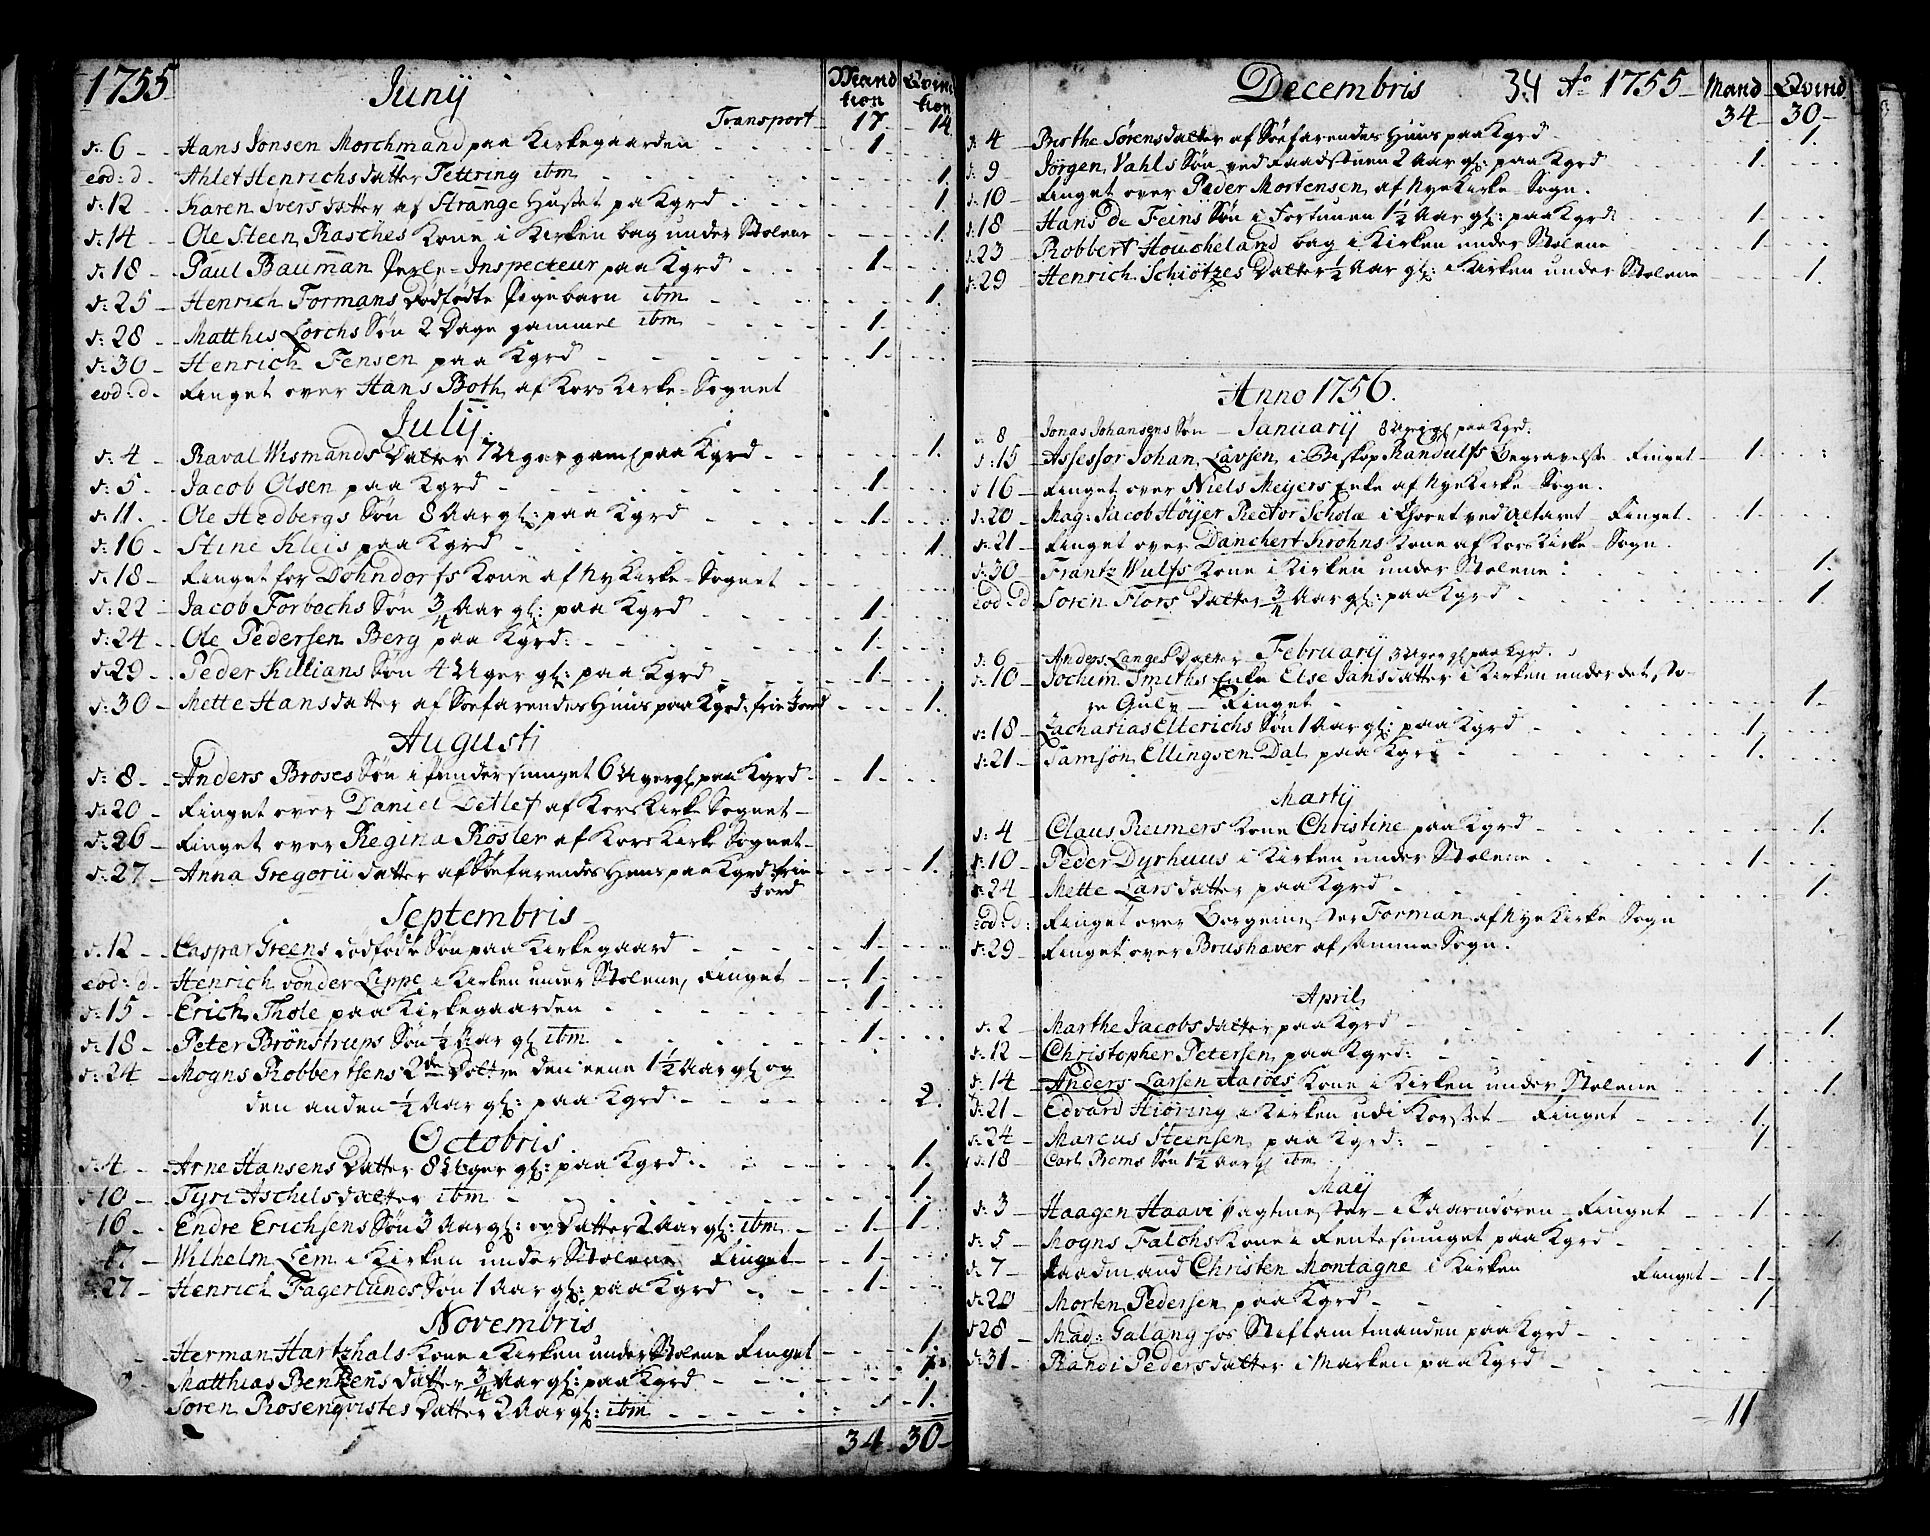 1755 Junij Mand Qvind
kion kion
Transport 17 14
d: 6 Hans Jonsen Morchmand paa Kirkegaarden 1
eod: d. Ahlet Henrichsdatter Tettring ibm 1
d: 12 Karen Iversdatter af Strange Huset pa Kgrd 1
d: 14 Ole Steen Rasches Kone i Kirken bag under Stolene 1
d: 18 Paul Bauman Perle-Inspecteur paa Kgrd 1
d: 25 Henrich Formans dödfödte Pigebarn ibm 1
d: 28 Matthis Lorchs Sön 2 Dage gammel ibm 1
d: 30 Henrich Jensen paa Kgrd 1
eod: d. Ringet over Hans Both af Kors Kirke-Sognet
Julij
d: 4 Raval Wismands Datter 7 Uger gaml paa Kgrd 1
d: 5 Jacob Olsen paa Kgrd 1
d: 11. Ole Hedbergs Sön 8 Aar gl: paa Kgrd 1
d: 16 Stine Kleis paa Kgrd 1
d: 18 Ringet for Dohndorfs Kone af Ny Kirke-Sognet
d: 22 Jacob Forbochs Sön 3/4 Aar gl: paa Kgrd 1
d: 24 Ole Pedersen Berg paa Kgrd: 1
d: 29 Peder Killians Sön 4 Uger gl: paa Kgrd 1
d: 30 Mette Hansdatter af Söefarendes Huus paa Kgrd: frie Jord 1
Augusti
d: 8 Anders Broses Sön i 6 Uger gl paa Kgrd 1
d: 20 Ringet over Daniel Detlef af Kors Kirke Sognet
d: 26 Ringet over Regina Rösler af Kors Kirke Sognet
d: 27 Anna Gregorii datter af Söefarendes Huus paa Kgrd: frie 1
Jord
Septembris
d: 12 Caspar Greens dödfödte Sön paa Kirkegaard 1
eod: d. Henrich von der Lippe i Kirken under Stolene, Ringet 1
d: 15 Erich Thole paa Kirkegaarden 1
d: 18 Peter Brönstrups Sön 1/2 Aar gl ibm 1
d: 24 Mogns Robbertsens 2de Dottre den eene 1 1/2 Aar gl og
den anden 1/2 Aar gl: paa Kgrd: 2.
Octobris
d: 4 Arne Hansens Datter 8 Uger gl: paa Kgrd: 1
d: 10 Tyri Aschelsdatter ibm 1
16 Endre Erichsens Sön 3 Aar gl: og Datter 2 Aar gl: ibm 1 1
17 Wilhelm Lem i Kirken under Stolene Ringet 1
27 Henrich Fagerlunds Sön 1 Aar gl: paa Kgrd 1
Novembris
Herman Hartzhals Kone i Kirken under Stolene Ringet 1
Matthias Benkens datter 3/4 Aar gl: paa Kgrd 1
Sören Rosenqvistes Datter 2 Aar gl: ibm 1
34 30
Decembris 34 Ao 1755 Mand Qvind
34 30
d: 4 Birthe Sörensdatter af Söefarendes Huus paa Kgrd 1
d: 9 Jörgen Vahls Sön ved Raadstuen 2 Aar gl: paa Kgrd 1
d: 10 Ringet over Peder Mortensen af Nye Kirke-Sogn.
d: 18 Hans de Feins Sön i Fortunen 1 1/2 Aar gl: paa Kgrd: 1
d: 23 Robbert Houcheland bag i Kirken under Stolene 1
d: 29 Henrich Schiötzes Datter 1/2 Aar gl: i Kirken under Stolene 1
Anno 1756.
d: 8 Jonas Johansens Sön - Januarij 8 Uger gl paa Kgrd:
d: 15 Assessor Johan Lavsen i Biskop Randulfs Begravelse Ringet 1
d 16 Ringet over Niels Meyers Enke af Nye Kirke-Sogn.
d: 20 Mag: Jacob Höyer Rector Scholæ i Choret ved Altaret Ringet 1
d: 21 Ringet over Danchert Krohns Kone af Kors Kirke-Sogn.
d: 30 Frantz Wulfs Kone i Kirken under Stolene: 1.
eod: d Sören Flors Datter 3/4 Aar gl: paa Kgrd 1
d: 6 Anders Langes Datter Februarij 3 Uger gl paa Kgrd.
d: 10 Jochim Smiths Enke Else Jansdatter i Kirken under det sto-
re Gulv - Ringet 1
d: 18 Zacharias Elterichs Sön 1 Aar gl: paa Kgrd 1
d: 21 Samson Ellingsen Dal paa Kgrd 1.
Martij
d: 4 Claus Reimers Kone Christine paa Kgrd 1.
d: 10 Peder Dyrhuus i Kirken under Stolene 1
d: 24 Mette Larsdatter paa Kgrd 1.
eod: d: Ringet over Borgemester Forman af Nye Kirke-Sogn
d: 29 Ringet over Brushaver af samme Sogn.
April
d: 2 Marthe Jacobsdatter paa Kgrd 1
d: 12 Christopher Petersen paa Kgrd: 1
d: 14 Anders Larsen Aaröes Kone i Kirken under Stolene 1
d: 21 Edvard Hiöring i Kirken udi Korset Ringet 1
d: 24 Marcus Steensen paa Kgrd: 1
d: 18 Carl Roms Sön 1 1/2 Aar gl ibm
Maij
d: 3 Haagen Haavi Vagtmester i Ringet 1
d: 5 Mogns Falchs Kone i Rentesmuget paa Kgrd 1
d: 7 Raadmand Christen Montagne i Kirken Ringet 1
d: 20 Morten Pedersen paa Kgrd 1
d 28 Mad: Galang hos Stiftamtmanden paa Kgrd
d: 31 Randi Pedersdatter i Marken paa Kgrd
11